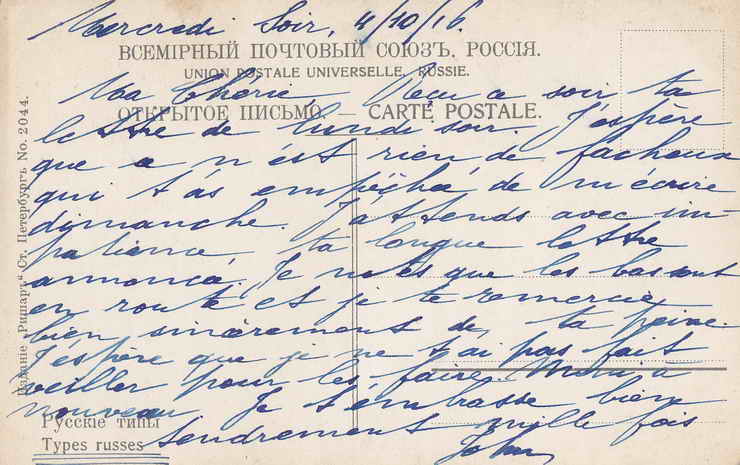 Mercredi Soir, 4/10/16.
ВСЕМІРНЫЙ ПОЧТОВЫЙ СОЮЗЪ, РОССІЯ.
UNION POSTALE UNIVERSELLE, RUSSIE.
Ma Chérie Reçu ce soir ta
ОТКРЫТОЕ ПИСЬМО. — CARTE POSTALE.
lettre de lundi soir. J'espère
que ce n'est rien de fâcheux
qui t'as empêché de m'écrire
dimanche. J'attends avec im-
patience ta longue lettre
annoncé. Je notes que les bas sont
en route et je te remercie
bien sincèrement de ta peine.
J'espère que je ne t'ai pas fait
veiller pour les faire. Merci à
nouveau. Je t'embrasse bien
Русскіе типы
tendrement mille fois
Types russes
John
Изданіе „Ришаръ“ Ст. Петербургъ No. 2044.